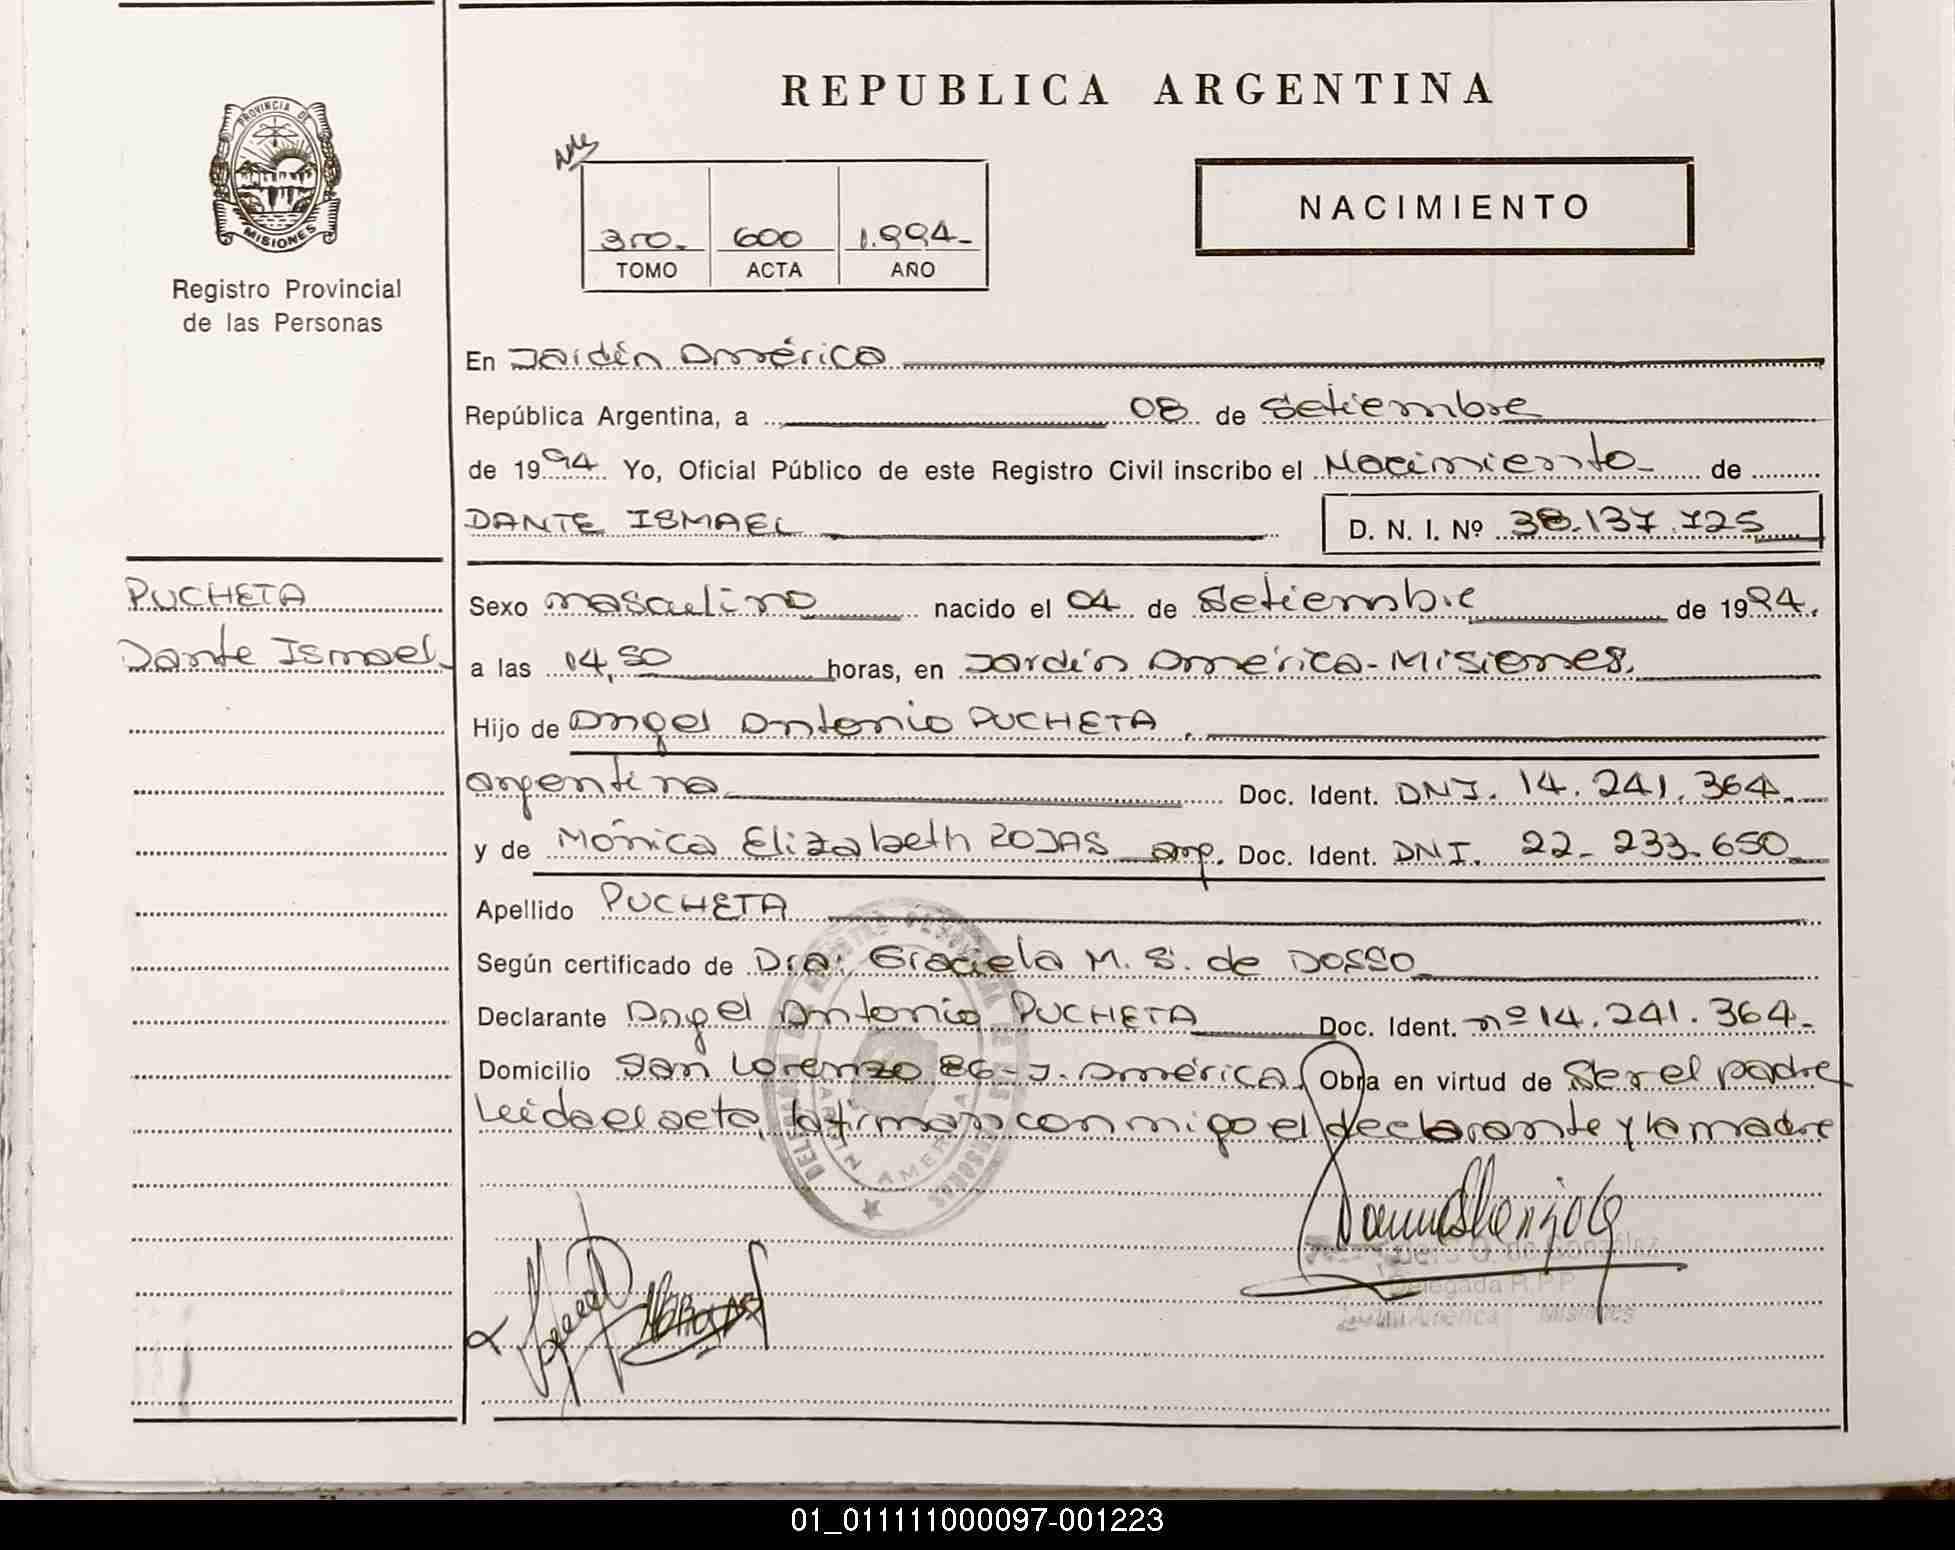 REPUBLICA ARGENTINA
PROVINCIA DE
MISIONES
Registro Provincial
de las Personas
NACIMIENTO
3ro. 600 1.994-
TOMO ACTA AÑO
En Jardín América
República Argentina, a 08 de Setiembre
de 1994 Yo, Oficial Público de este Registro Civil inscribo el Nacimiento de
DANTE ISMAEL D. N. I. Nº 38.137.725
PUCHETA
Dante Ismael
Sexo masculino nacido el 04 de Setiembre de 1994.
a las 04,50 horas, en Jardín América-Misiones.
Hijo de Angel Antonio PUCHETA,
argentina Doc. Ident. DNI. 14.241.364
y de Mónica Elizabeth ROJAS arg. Doc. Ident. DNI. 22-233.650
Apellido PUCHETA
Según certificado de Dra: Graciela M. S. de DOSSO
Declarante Angel Antonio PUCHETA Doc. Ident. nº14.241.364-
Domicilio San Lorenzo 86-J. América. Obra en virtud de Ser el padre
Leida el acta, la firman conmigo el declarante y la madre
AMERICA
O. de González
Delegada R.P.P.
Jardín América Misiones
01_011111000097-001223